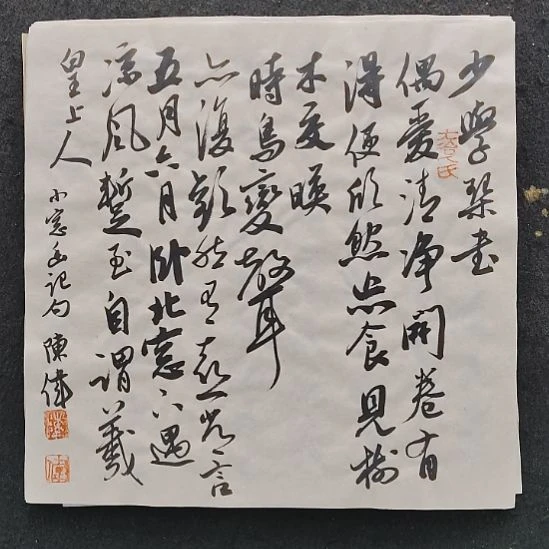 少學琴書
偶愛清淨開卷有
得便欣然忘食見樹
木交暎
時鳥變聲
亦復歡然有喜嘗言
五月六月臥北窓下遇
涼風暫至自謂羲
皇上人
小窓幽記句 陳偉